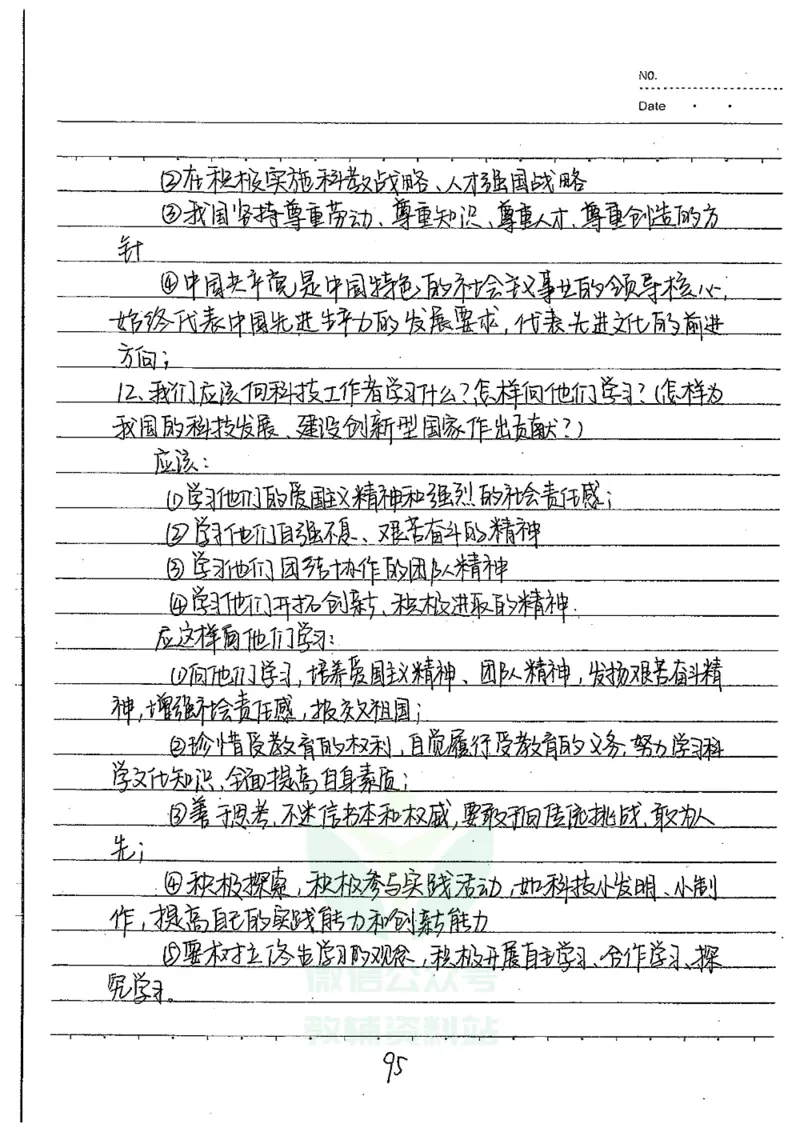 NO.
Date
②在积极实施科教战略、人才强国战略
③我国坚持尊重劳动、尊重知识、尊重人才、尊重创造的方
针
④中国共产党是中国特色的社会主义事业的领导核心;
始终代表中国先进生产力的发展要求,代表先进文化的前进
方向;
12、我们应该向科技工作者学习什么?怎样向他们学习?(怎样为
我国的科技发展、建设创新型国家作出贡献?)
应该:
①学习他们的爱国主义精神和强烈的社会责任感;
②学习他们自强不息、艰苦奋斗的精神
③学习他们团结协作的团队精神
④学习他们开拓创新、积极进取的精神.
应这样向他们学习:
①向他们学习,培养爱国主义精神、团队精神,发扬艰苦奋斗精
神,增强社会责任感,报效祖国;
②珍惜受教育的权利,自觉履行受教育的义务;努力学习科
学文化知识,全面提高自身素质;
③善于思考,不迷信书本和权威,要敢于向传统挑战,敢为人
先;
④积极探索,积极参与实践活动,如科技小发明、小制
作,提高自己的实践能力和创新能力
⑤要树立终生学习的观念,积极开展自主学习、合作学习、探
究学习。
微信公众号
教辅资料站
95